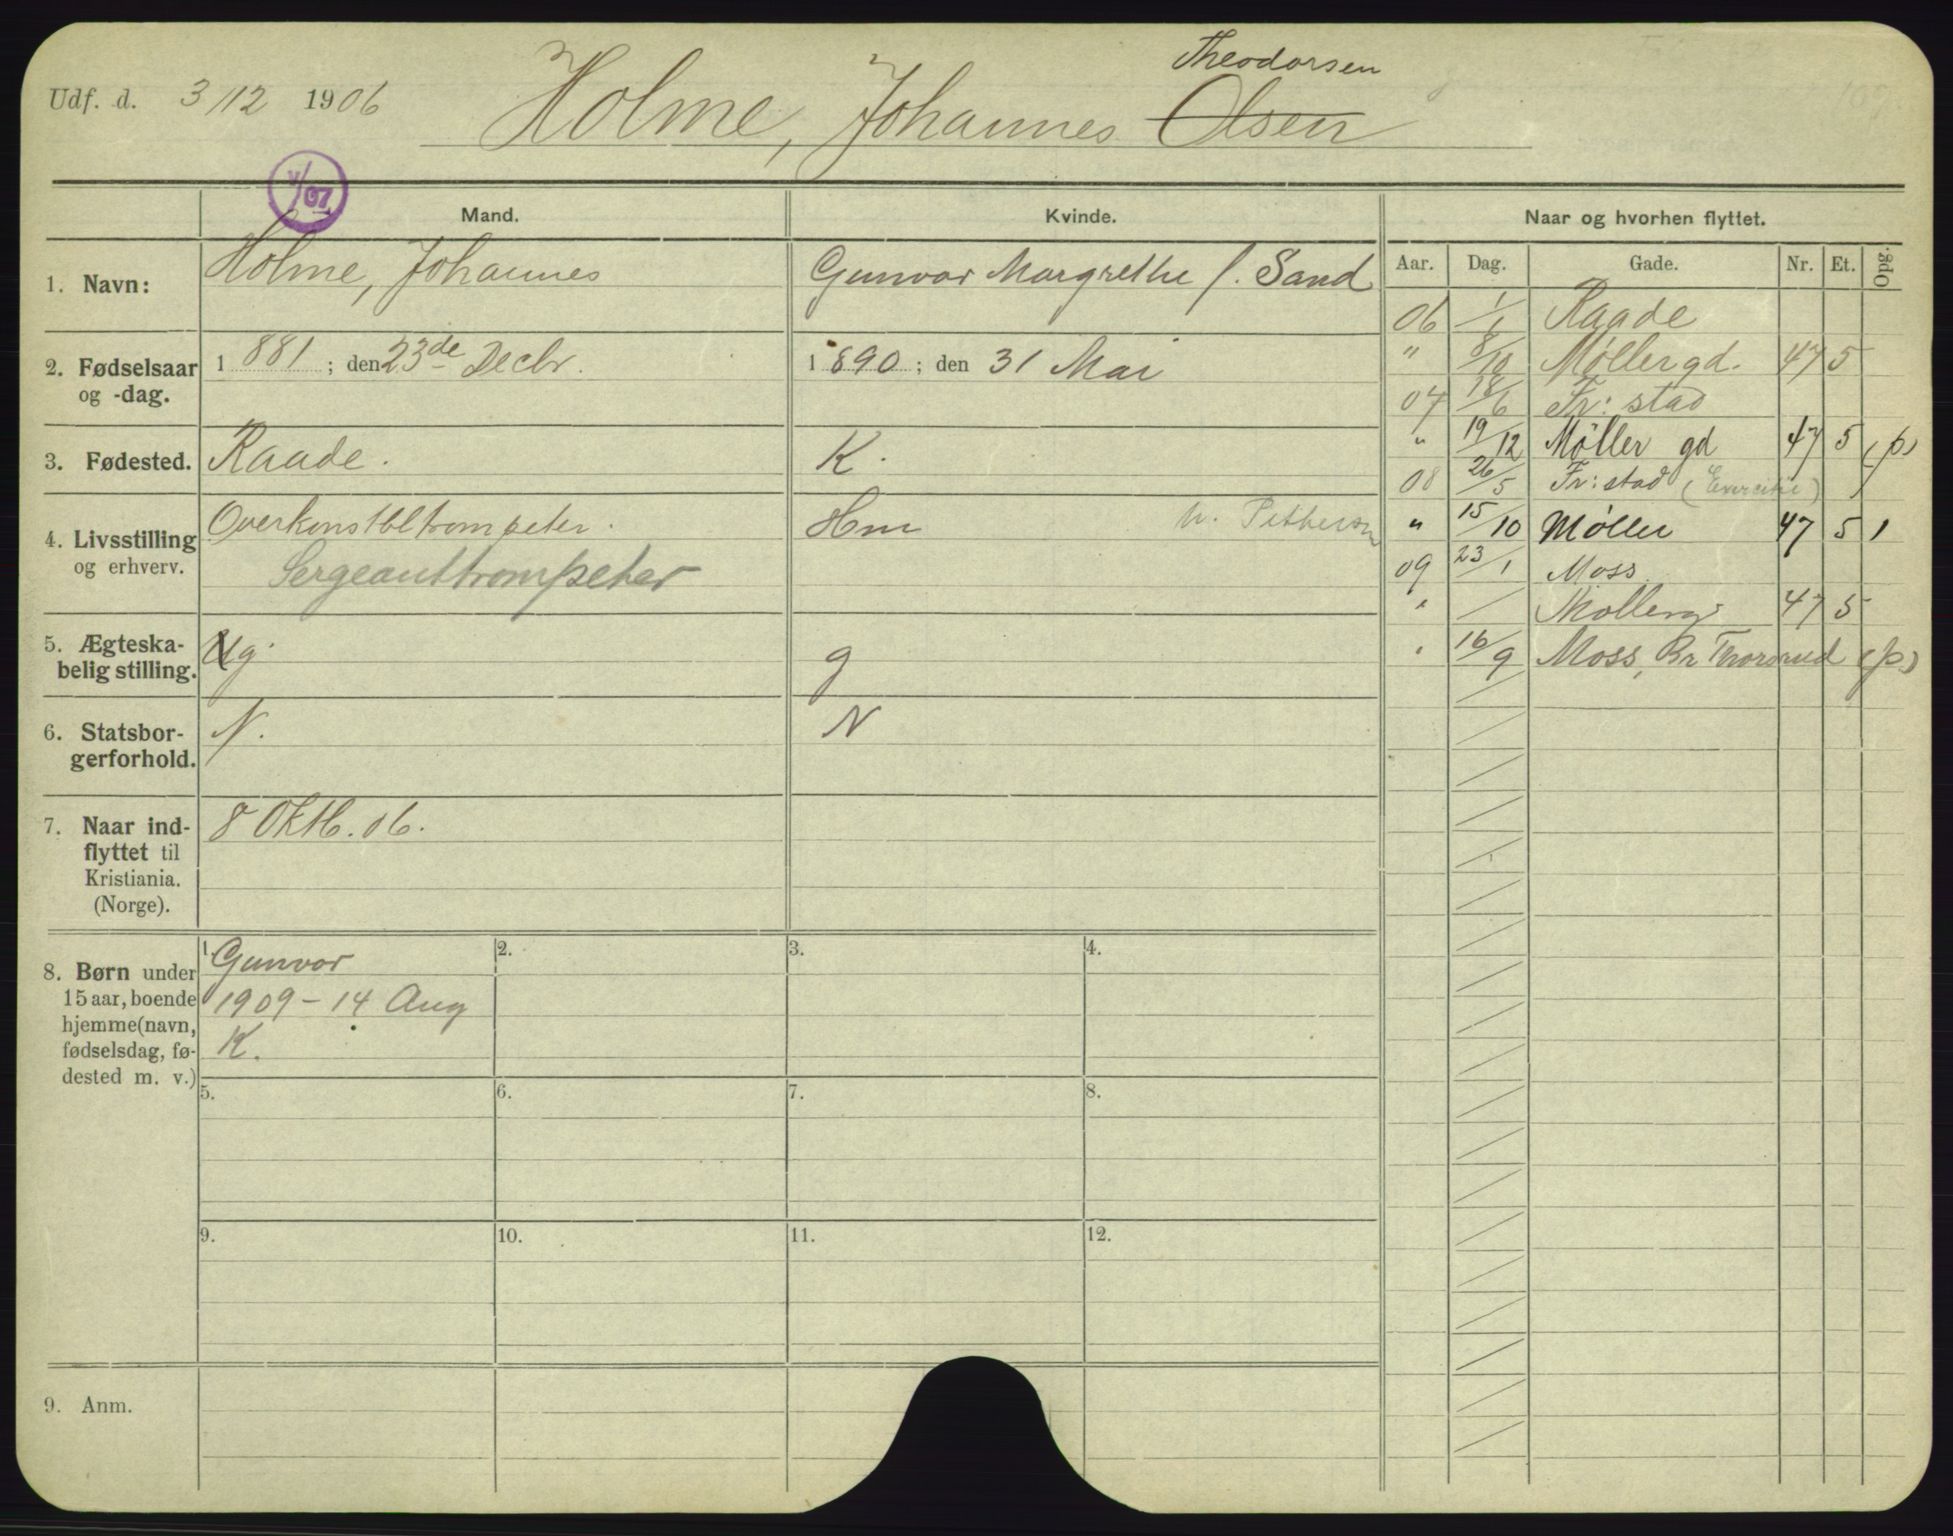 Theodorsen
Udf. d. 3/12 1906 Holme, Johannes Olsen
V/07
Mand. Kvinde. Naar og hvorhen flyttet.
Aar. Dag. Gade. Nr. Et. Opg.
1. Navn: Holme, Johannes Gunvor Margrethe f. Sand
2. Fødselsaar og -dag. 1881; den 23de Decbr. 1890; den 31 Mai
3. Fødested. Raade. K.
4. Livsstilling og erhverv. Overkonstbltrompeter. Hm
Sergeanttrompeter
5. Ægteskabelig stilling. g. g
6. Statsborgerforhold. N. N
7. Naar indflyttet til Kristiania. (Norge). 8 Oktb. 06.
06 1/1 Raade
" 8/10 Møllergd. 47 5
07 18/6 Fr:stad
" 19/12 Møller gd 47 5 (p)
08 26/5 Fr:stad
" 15/10 Møller 47 5 1
09 23/1 Moss
" / Møllerg 47 5
" 16/9 Moss, Br Thorsrud (p)
8. Børn under
15 aar, boende
hjemme (navn,
fødselsdag, fødested m. v.)
1. Gunvor
1909 – 14 Aug
K.
2. 3. 4.
5. 6. 7. 8.
9. 10. 11. 12.
9. Anm.